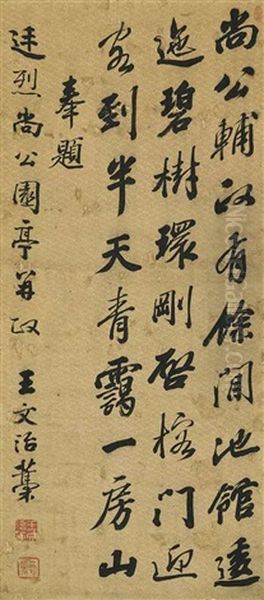 尚公輔政有餘閒池館透
迤碧樹環剛啓榕門迎
客到半天青靄一房山
奉題
廷烈尚公園亭並政
王文治藁